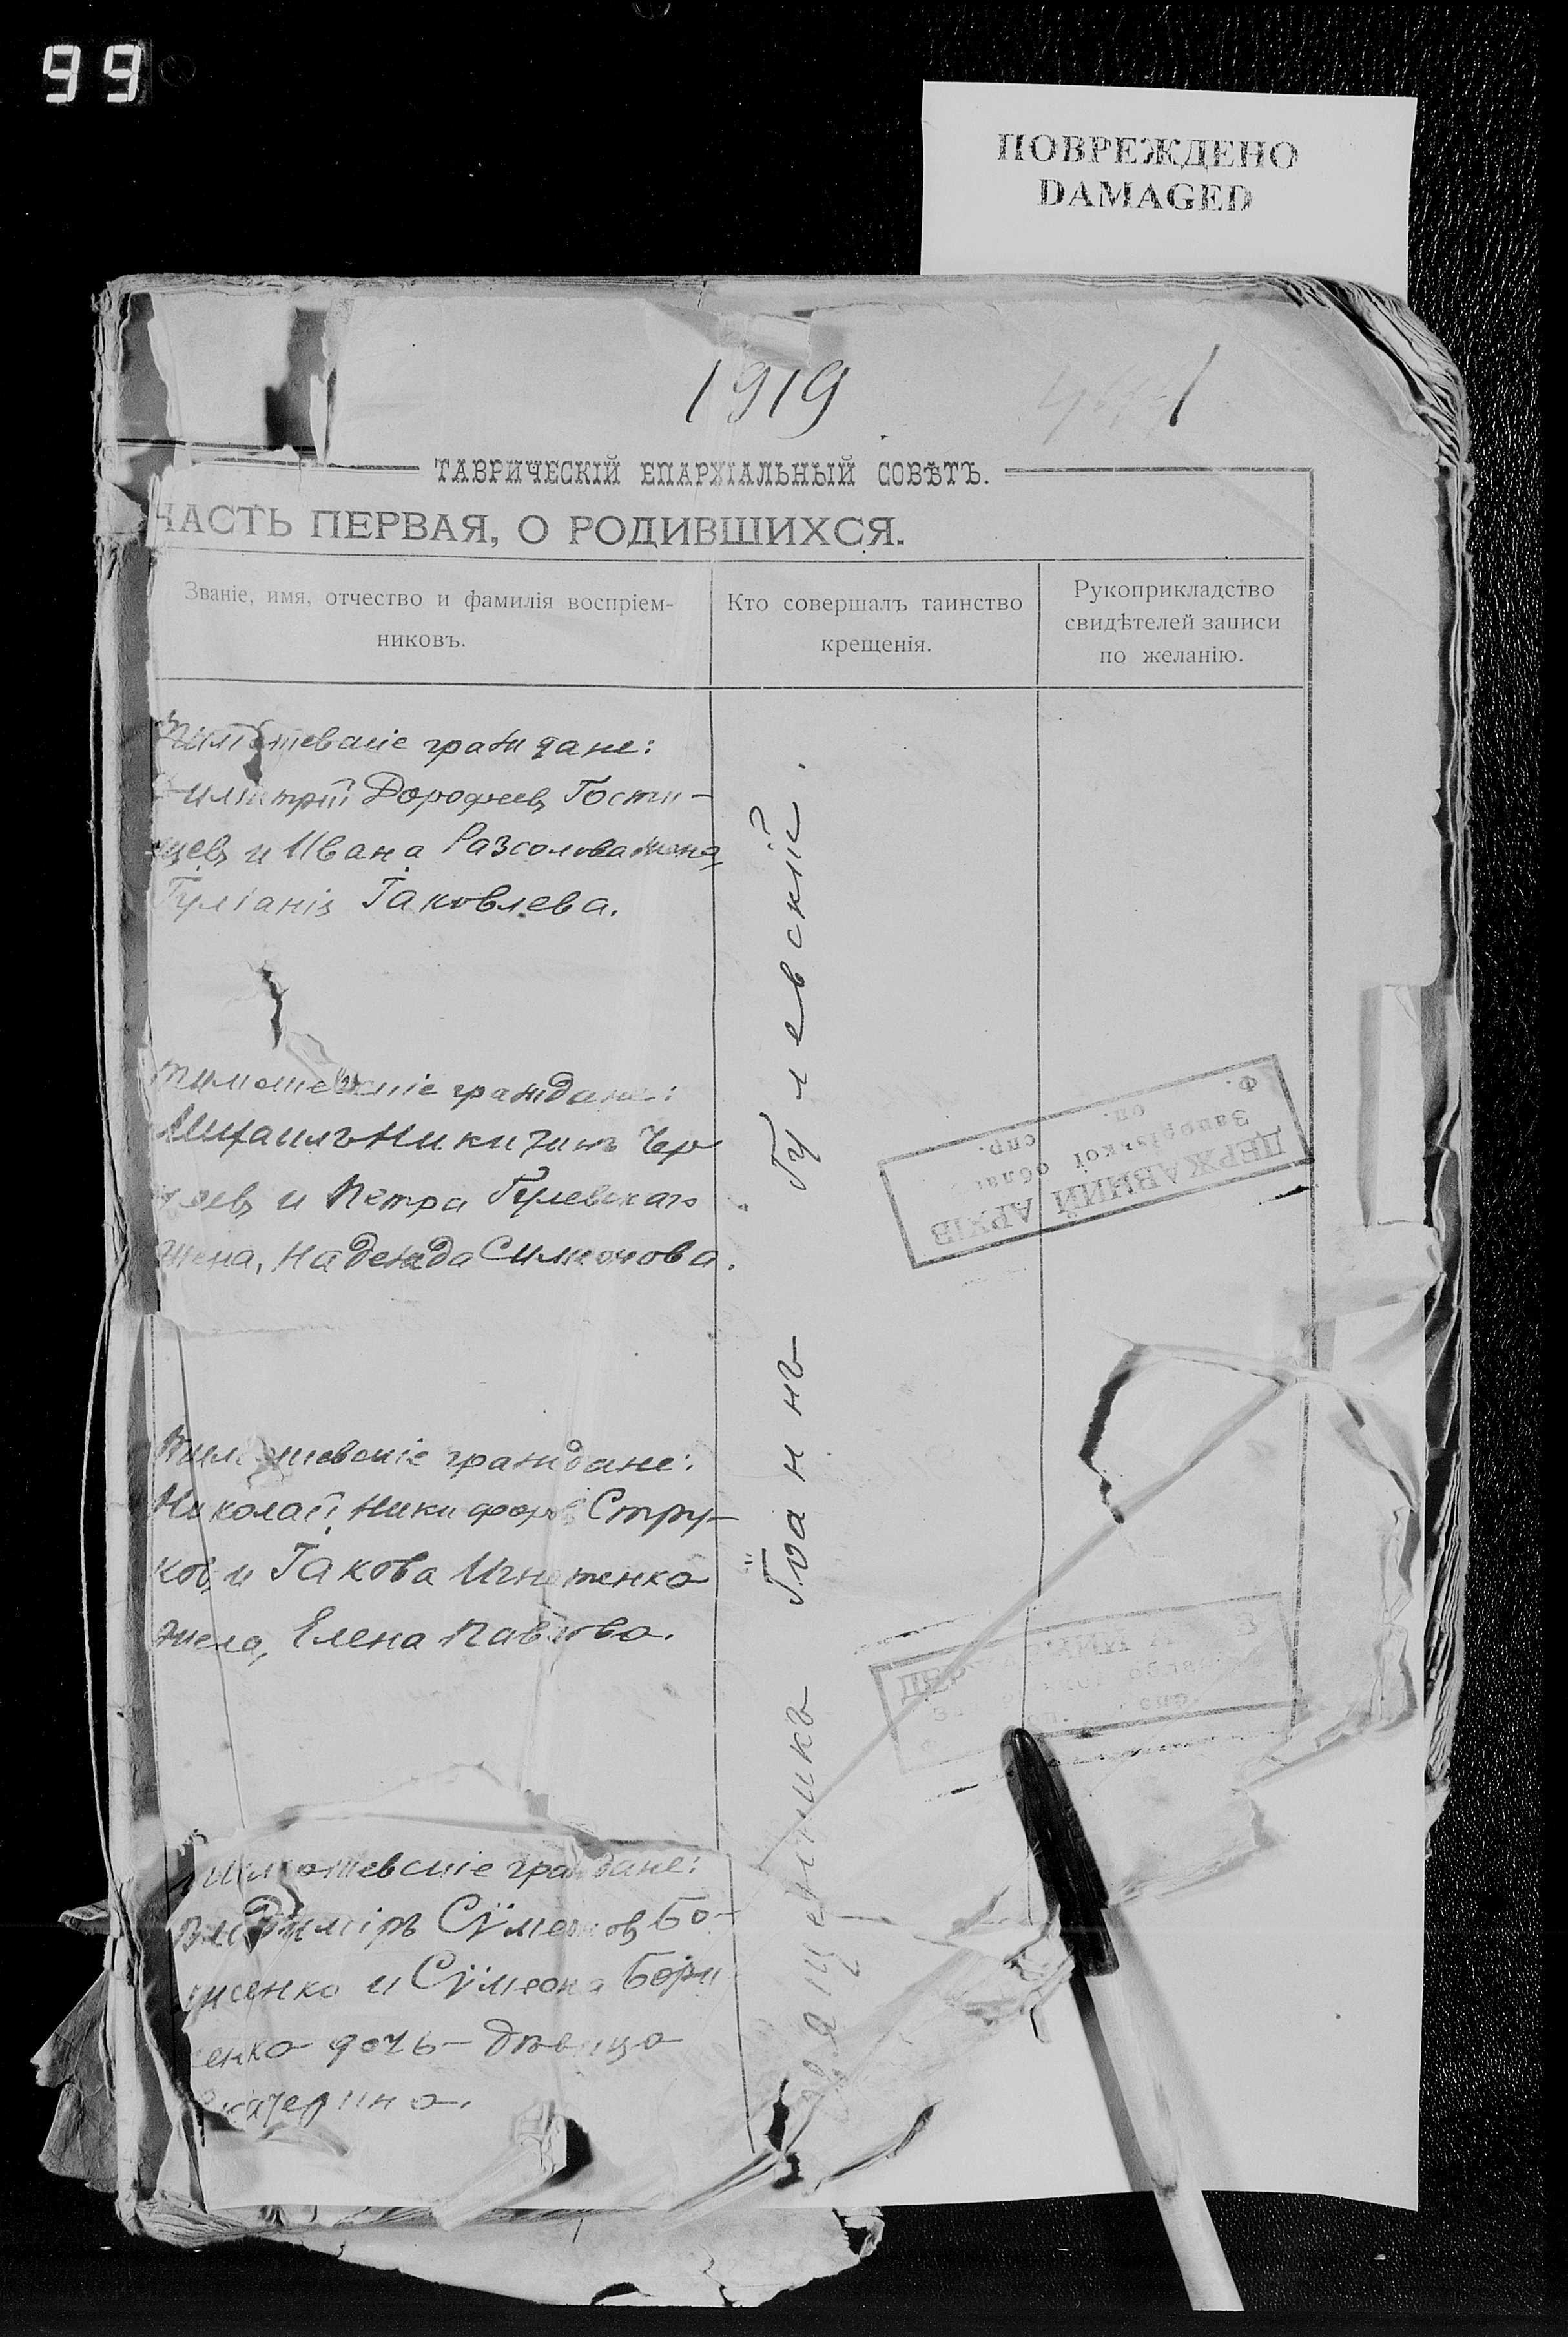 99
ПОВРЕЖДЕНО
DAMAGED
1919
ТАВРИЧЕСКІЙ ЕПАРХІАЛЬНЫЙ СОВѢТЪ.
ЧАСТЬ ПЕРВАЯ, О РОДИВШИХСЯ.
Званіе, имя, отчество и фамилія воспріем-
никовъ.
Кто совершалъ таинство
крещенія.
Рукоприкладство
свидѣтелей записи
по желанію.
граждане:
Димитрій Дорофеев Гости-
щев и Ивана Разсолова жена,
Іуліанія Іаковлева.
Тимошевскіе граждане:
Михаилъ Никитинъ Чер
и Петра Гулевскаго
жена, Надежда Симеонова.
Тимошевскіе граждане:
Николай Никифоров Стру-
ков и Іакова Игнатенко
жена, Елена Павлова.
Тимошевскіе граждане:
Владиміръ Сѵмеонов Бо-
рисенко и Сѵмеона Бори
сенко дочь - дѣвица
Екатерина.
Священникъ Іоаннъ Гулевскій.
ДЕРЖАВНИЙ АРХІВ
Запорізької облас
Ф. оп. спр.